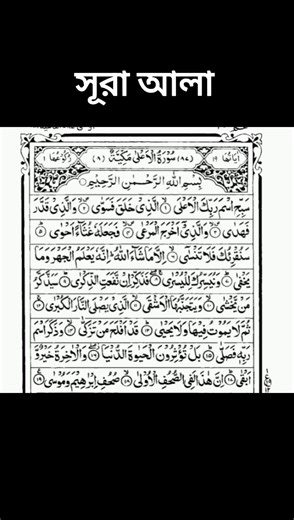 সূরা আলা
اٰیَاتُهَا ١٩ (٨٧) سُوْرَةُ الْاَعْلٰى مَكِّیَّةٌ (٨) رُكُوْعُهَا ١
بِسْمِ اللّٰهِ الرَّحْمٰنِ الرَّحِیْمِ
سَبِّحِ اسْمَ رَبِّكَ الْاَعْلَى ۙ١ الَّذِیْ خَلَقَ فَسَوّٰى ۪ۙ٢ وَالَّذِیْ قَدَّرَ
فَهَدٰى ۪ۙ٣ وَالَّذِیْۤ اَخْرَجَ الْمَرْعٰى ۪ۙ٤ فَجَعَلَهٗ غُثَآءً اَحْوٰى ؕ٥
سَنُقْرِئُكَ فَلَا تَنْسٰۤى ۙ٦ اِلَّا مَا شَآءَ اللّٰهُ ؕ اِنَّهٗ یَعْلَمُ الْجَهْرَ وَمَا
یَخْفٰى ؕ٧ وَنُیَسِّرُكَ لِلْیُسْرٰى ۚۖ٨ فَذَكِّرْ اِنْ نَّفَعَتِ الذِّكْرٰى ؕ٩ سَیَذَّكَّرُ
مَنْ یَّخْشٰى ۙ١٠ وَیَتَجَنَّبُهَا الْاَشْقَى ۙ١١ الَّذِیْ یَصْلَى النَّارَ الْكُبْرٰى ۚ١٢
ثُمَّ لَا یَمُوْتُ فِیْهَا وَلَا یَحْیٰى ؕ١٣ قَدْ اَفْلَحَ مَنْ تَزَكّٰى ۙ١٤ وَذَكَرَ اسْمَ
رَبِّهٖ فَصَلّٰى ؕ١٥ بَلْ تُؤْثِرُوْنَ الْحَیٰوةَ الدُّنْیَا ۖ١٦ وَالْاٰخِرَةُ خَیْرٌ وَّ
اَبْقٰى ؕ١٧ اِنَّ هٰذَا لَفِی الصُّحُفِ الْاُوْلٰى ۙ١٨ صُحُفِ اِبْرٰهِیْمَ وَمُوْسٰى ١٩